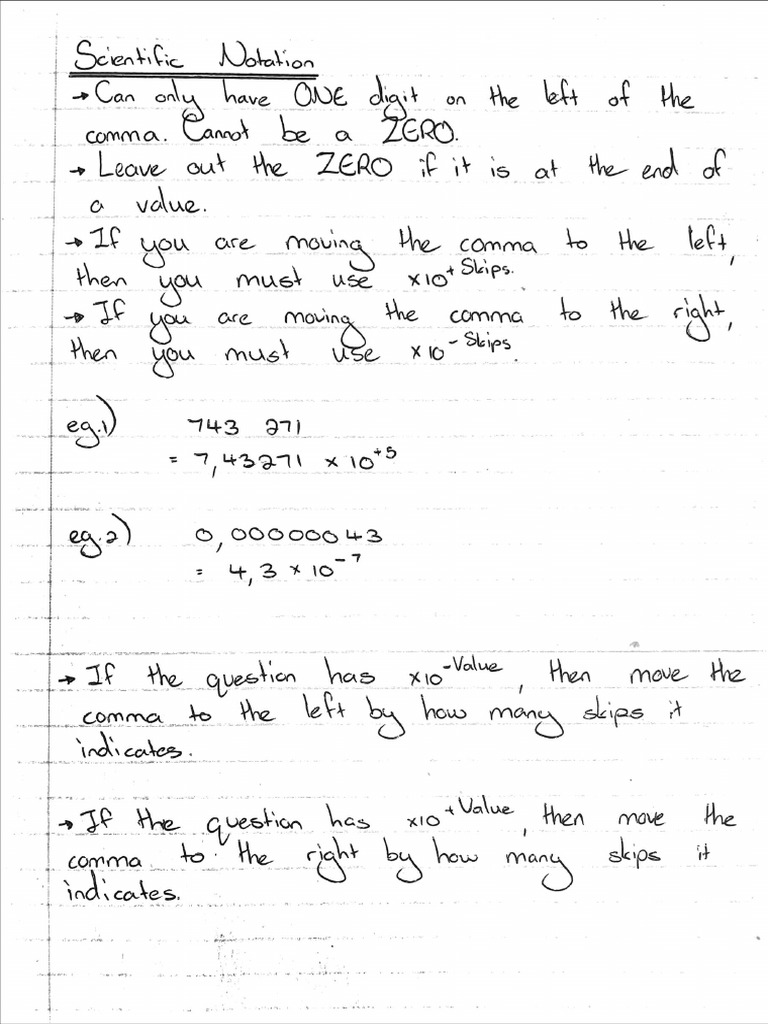 Scientific Notation
→ Can only have ONE digit on the left of the
comma. Cannot be a ZERO.
→ Leave out the ZERO if it is at the end of
a value.
→ If you are moving the comma to the left,
then you must use ×10⁺ Skips.
→ If you are moving the comma to the right,
then you must use ×10⁻ Skips.
eg.1) 743 271
= 7,43271 × 10⁺⁵
eg.2) 0,00000043
= 4,3 × 10⁻⁷
→ If the question has ×10⁻Value, then move the
comma to the left by how many skips it
indicates.
→ If the question has ×10⁺Value, then move the
comma to the right by how many skips it
indicates.